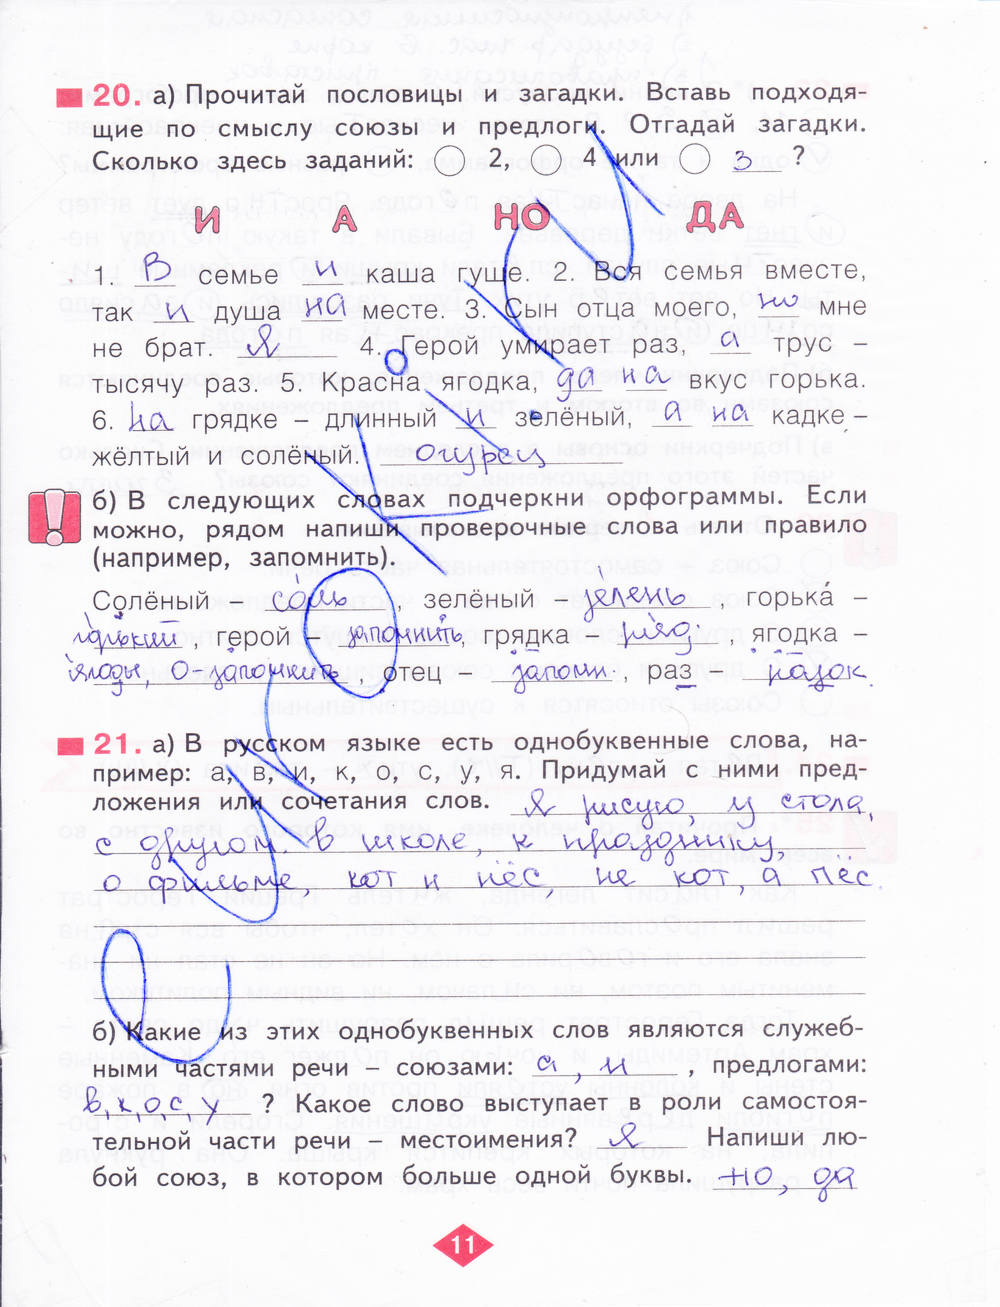 20. а) Прочитай пословицы и загадки. Вставь подходя-
щие по смыслу союзы и предлоги. Отгадай загадки.
Сколько здесь заданий: 2, 4 или 3 ?
И А НО ДА
1. В семье и каша гуще. 2. Вся семья вместе,
так и душа на месте. 3. Сын отца моего, но мне
не брат. Я 4. Герой умирает раз, а трус –
тысячу раз. 5. Красна ягодка, да на вкус горька.
6. На грядке – длинный и зелёный, а на кадке –
жёлтый и солёный. огурец
б) В следующих словах подчеркни орфограммы. Если
можно, рядом напиши проверочные слова или правило
(например, запомнить).
Солёный – соль, зелёный – зелень, горька́ –
горький, герой – запомнить, грядка – ряд, ягодка –
ягоды, о-запомнить, отец – запомн., раз
21. а) В русском языке есть однобуквенные слова, на-
пример: а, в, и, к, о, с, у, я. Придумай с ними пред-
ложения или сочетания слов. Я рисую, у стола,
с другом. в школе, к празднику,
о фильме кот и пёс не кот, а пёс
б) Какие из этих однобуквенных слов являются служеб-
ными частями речи – союзами: а, и, предлогами:
в, к, о, с, у ? Какое слово выступает в роли самостоя-
тельной части речи – местоимения? я Напиши лю-
бой союз, в котором больше одной буквы. но, да
11